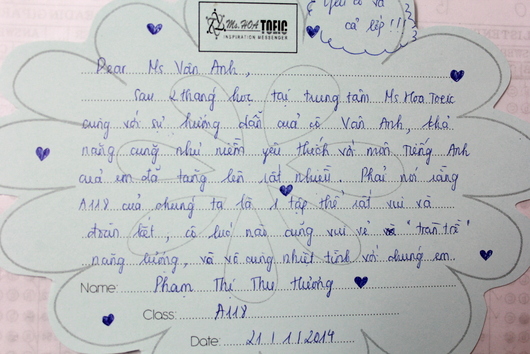 Ms. HOA TOEIC
INSPIRATION MESSENGER
Yêu cô và
cả lớp!!!
Dear Ms Vân Anh,
Sau 2 tháng học tại trung tâm Ms Hoa Toeic
cùng với sự hướng dẫn của cô Vân Anh, khả
năng cũng như niềm yêu thích với môn Tiếng Anh
của em đã tăng lên rất nhiều. Phải nói rằng
A118 của chúng ta là 1 tập thể rất vui và
đoàn kết, cô lúc nào cũng vui vẻ và "tràn trề"
năng lượng, và vô cùng nhiệt tình với chúng em.
Name: Phạm Thị Thu Hường
Class: A118
Date: 21/1/2014